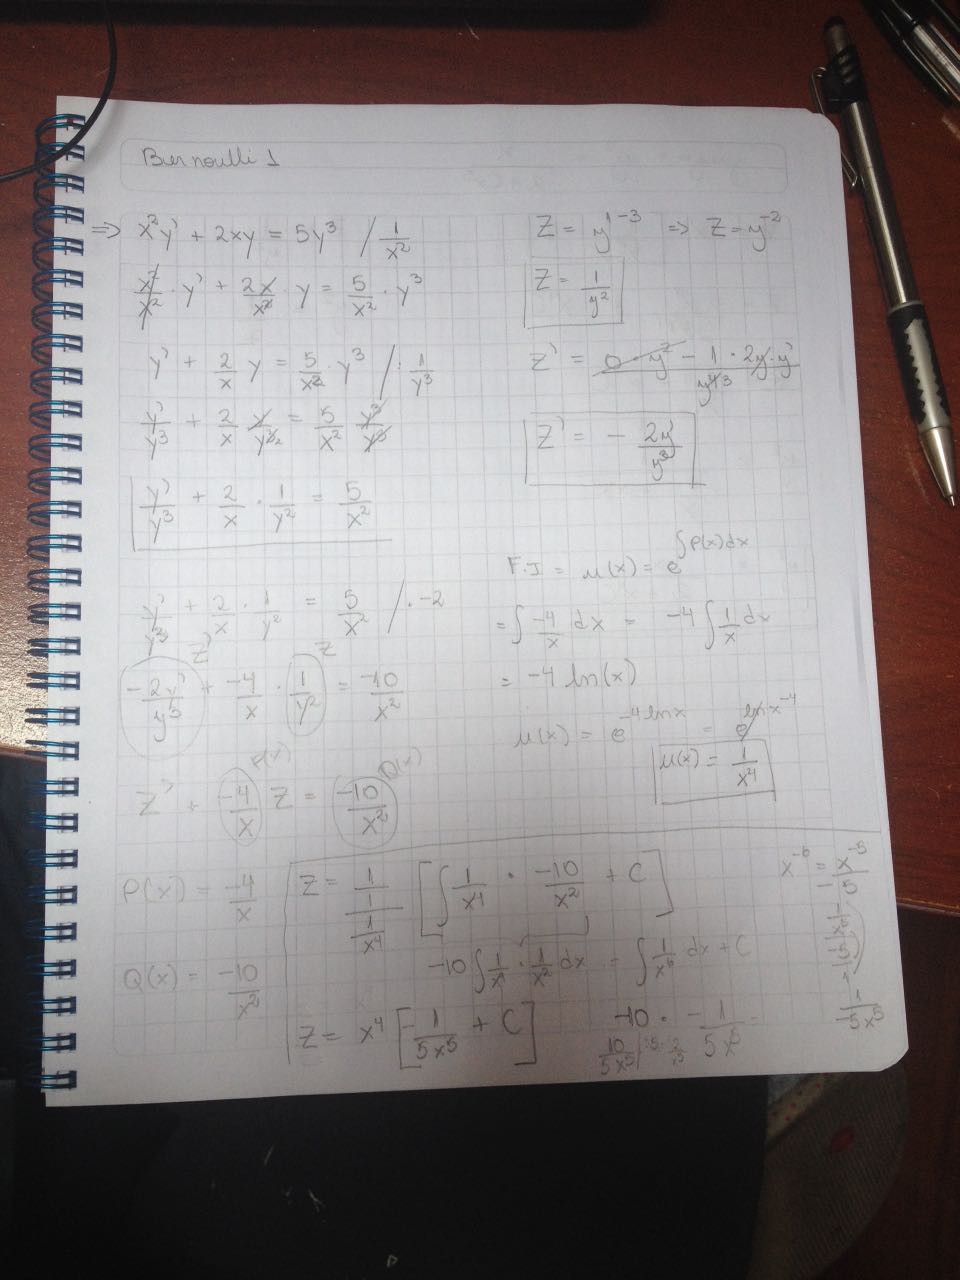 Bernoulli 1
=> x²y' + 2xy = 5y³ / 1/x²
x²/x² · y' + 2x/x² · y = 5/x² · y³
y' + 2/x y = 5/x² · y³ / · 1/y³
y'/y³ + 2/x y/y³ 2 = 5/x² y³/y³
y'/y³ + 2/x · 1/y² = 5/x²
y'/y³ + 2/x · 1/y² = 5/x² / · -2
z' z
-2y'/y³ + -4/x · 1/y² = -10/x²
P(x) Q(x)
z' + -4/x z = -10/x²
P(x) = -4/x
Q(x) = -10/x²
z = y^1-3 => z = y^-2
z = 1/y²
z' = 0 · y² - 1 · 2y · y' / y⁴ 3
z' = - 2y'/y³
F.I = u(x) = e^∫P(x)dx
= ∫ -4/x dx = -4 ∫ 1/x dx
= -4 ln(x)
u(x) = e^-4 ln x = e^ln x^-4
u(x) = 1/x⁴
z = 1/(1/x⁴) [∫ 1/x⁴ · -10/x² + C]
-10 ∫ 1/x⁴ · 1/x² dx = ∫ 1/x⁶ dx + C
z = x⁴ [- 1/5x⁵ + C]
-10 · - 1/5x⁵
10/5x⁵ :5 = 2/x⁵
x^-6 = x^-5/-5
1/x⁵
-5/1
1/-5x⁵